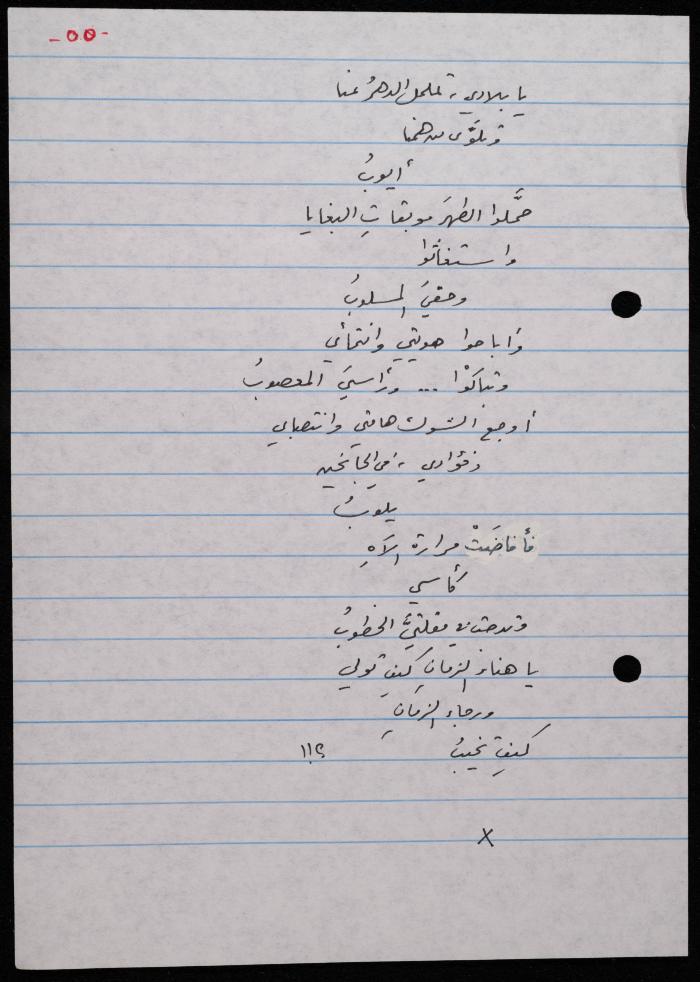 -٥٥-
يا بلادي، تململ الدهرُ عنا
وتلوَّى من همنا
أيوبُ
حمَّلوا الطهرَ موبقاتِ البغايا
واستغاثوا
وحقيَ المسلوبُ
وأباحوا هويتي وانتمائي
وتباكَوْا ... ورأسيَ المعصوبُ
أوجع الشوك هامتي وانتصابي
وفؤادي، في الجانحين
يلوبُ
فأفاضَتْ مرارة الآهِ
كأسي
وتدجت مقلتيَّ الخطوبُ
يا هناء الزمانِ كيف تولي
ورجاء الزمانِ
كيف تخيبُ ؟!!
x